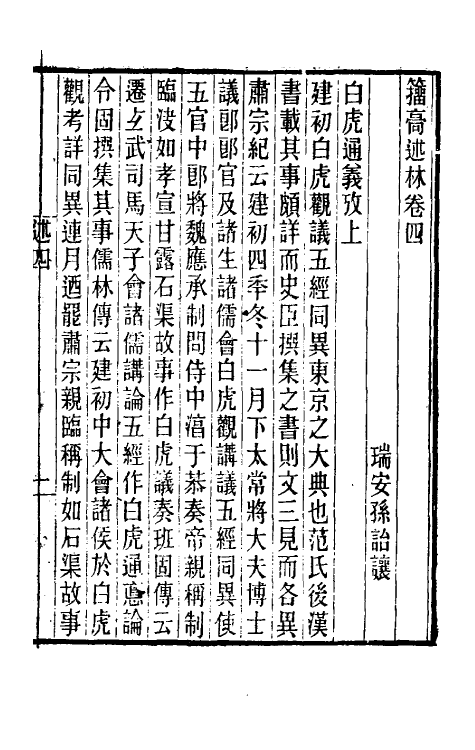 籀高述林卷四
瑞安孫詒讓
白虎通義攷上
建初白虎觀議五經同異東京之大典也范氏後漢
書載其事頗詳而史臣撰集之書則文三見而各異
肅宗紀云建初四秊冬十一月下太常將大夫博士
議郎郎官及諸生諸儒會白虎觀講議五經同異使
五官中郎將魏應承制問侍中湻于恭奏帝親稱制
臨決如孝宣甘露石渠故事作白虎議奏班固傳云
遷玄武司馬天子會諸儒講論五經作白虎通悳論
令固撰集其事儒林傳云建初中大會諸侯於白虎
觀考詳同異連月迺罷肅宗親臨稱制如石渠故事
述四
一